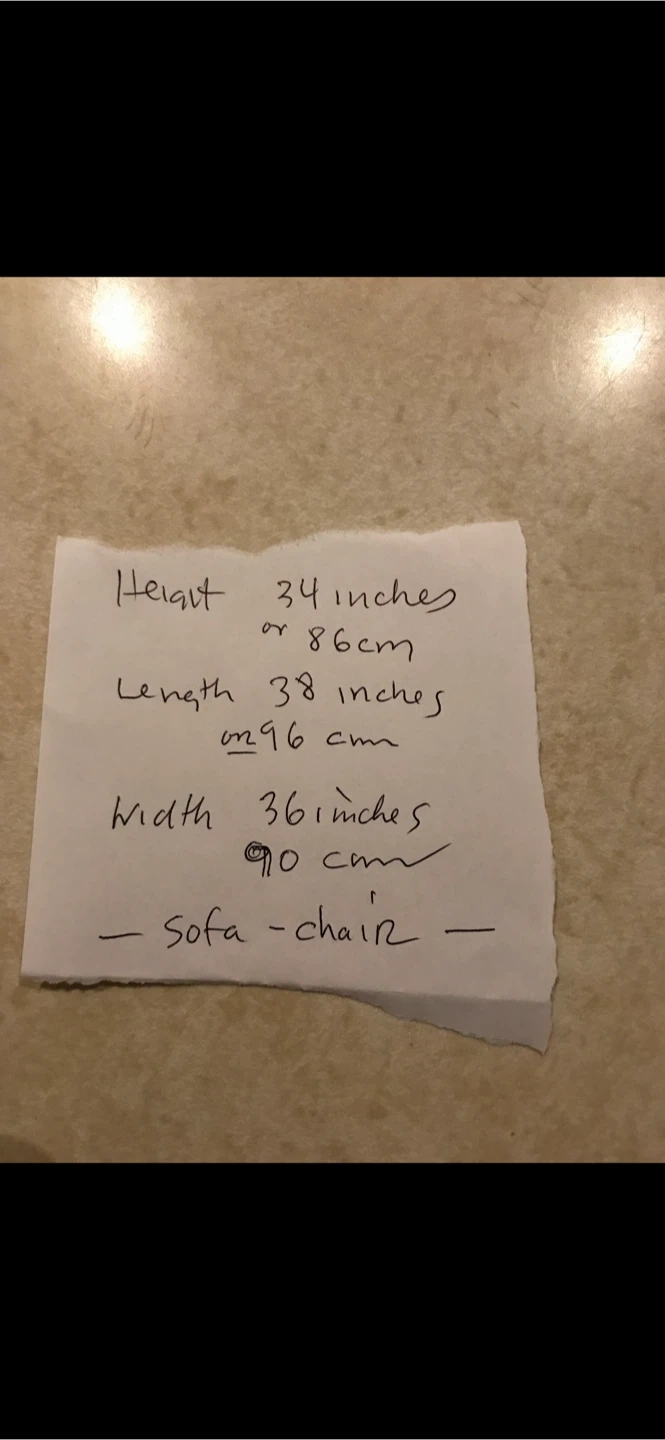 Height 34 inches
or 86cm
Length 38 inches
or 96 cm
Width 36 inches
90 cm
— Sofa - chair —